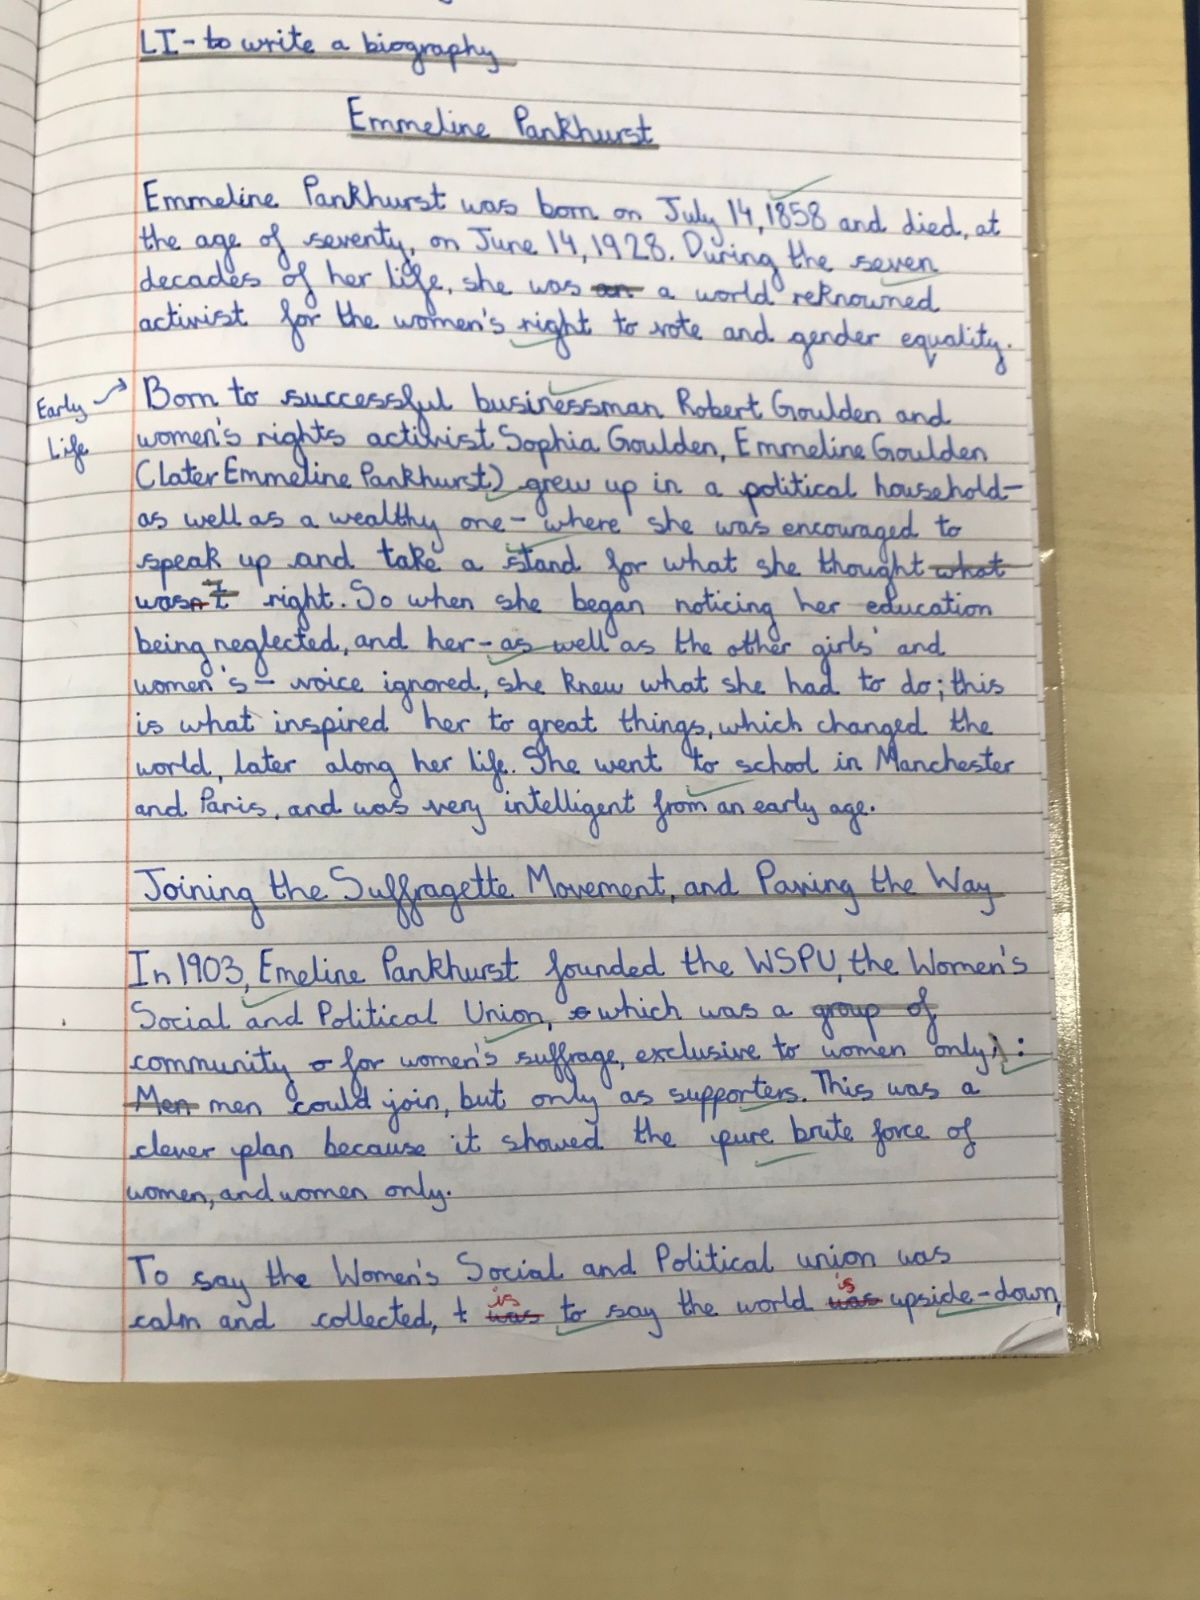 LI - to write a biography
Emmeline Pankhurst
Emmeline Pankhurst was born on July 14, 1858 and died, at
the age of seventy, on June 14, 1928. During the seven
decades of her life, she was an a world reknowned
activist for the women's right to vote and gender equality.
Early Life
Born to successful businessman Robert Goulden and
women's rights activist Sophia Goulden, Emmeline Goulden
(later Emmeline Pankhurst) grew up in a political household-
as well as a wealthy one - where she was encouraged to
speak up and take a stand for what she thought what
wasn't right. So when she began noticing her education
being neglected, and her - as well as the other girls' and
women's - voice ignored, she knew what she had to do; this
is what inspired her to great things, which changed the
world, later along her life. She went to school in Manchester
and Paris, and was very intelligent from an early age.
Joining the Suffragette Movement, and Paving the Way
In 1903, Emeline Pankhurst founded the WSPU, the Women's
Social and Political Union, which was a group of
community for women's suffrage, exclusive to women only:
Men men could join, but only as supporters. This was a
clever plan because it showed the pure brute force of
women, and women only.
To say the Women's Social and Political union was
is is
calm and collected, t was to say the world was upside-down,